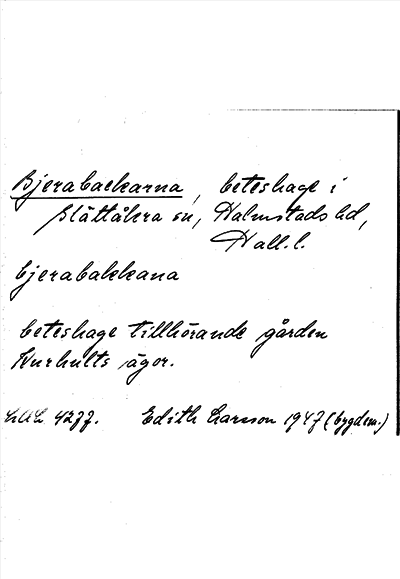 Bjerabackarna, beteshage i
Slättåkra sn, Halmstads hd,
Hall. l.
bjerabakkana
beteshage tillhörande gården
Kurhults ägor.
LUL 4277. Edith Larsson 1947 (bygdem.)